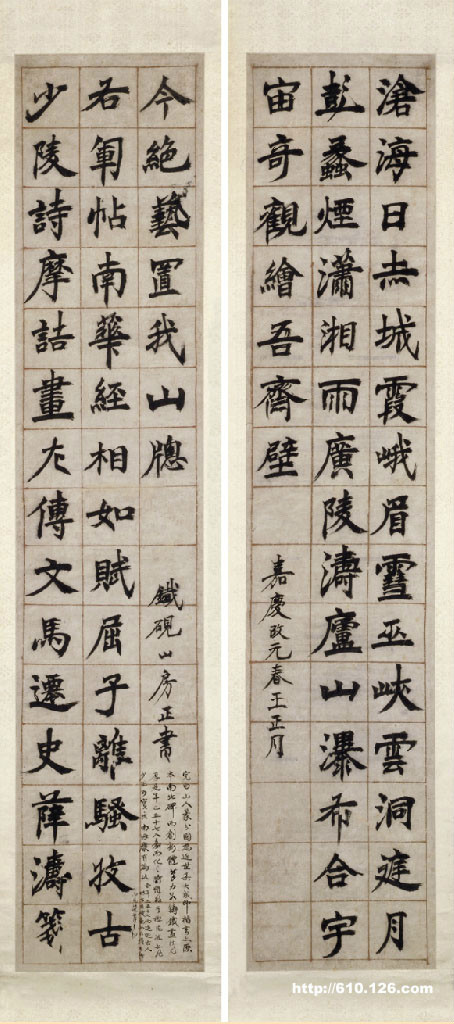 滄海日赤城霞峨眉雪巫峽雲洞庭月
彭蠡煙瀟湘雨廣陵濤廬山瀑布合宇
宙奇觀繪吾齋壁
嘉慶改元春王正月
少陵詩摩詰畫左傳文馬遷史薛濤箋
右軍帖南華經相如賦屈子離騷收古
今絕藝置我山牕
鐵硯山房正書
http://610.126.com